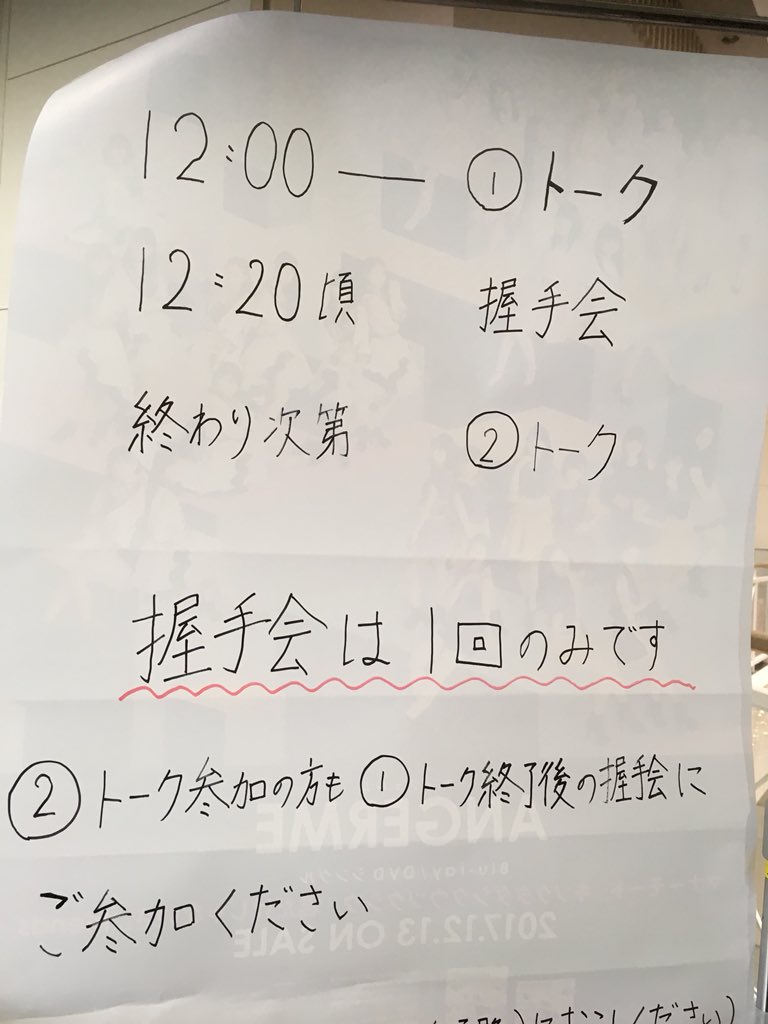 12:00 — ①トーク
12:20頃 握手会
終わり次第 ②トーク
握手会は1回のみです
②トーク参加の方も①トーク終了後の握手会に
ご参加ください
ANGERME
Blu-ray/DVDシングル
2017.12.13 ON SALE
ください)